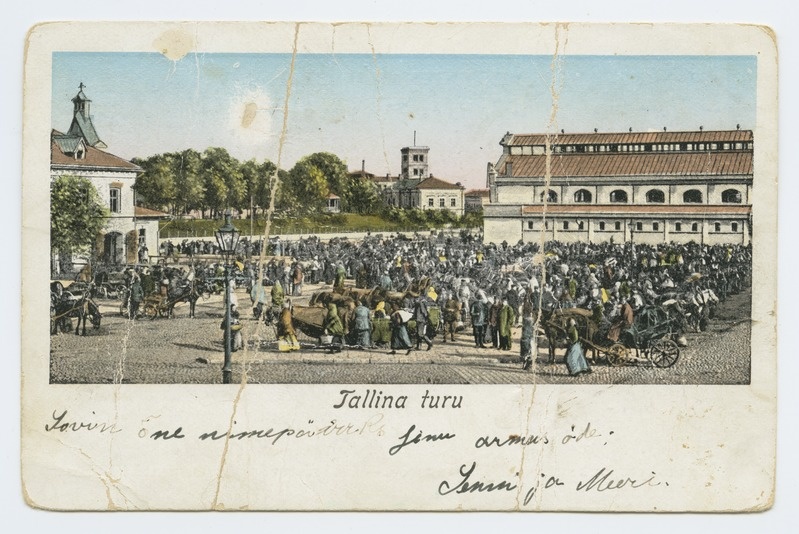 Tallina turu
Sovin õne nimepäivaks sinu armas õde:
Senni ja Meeri.